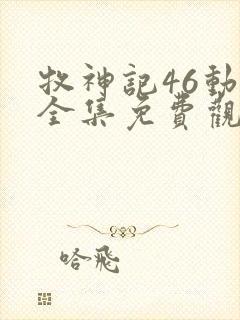 牧神記46動
全集免費觀
哈飛